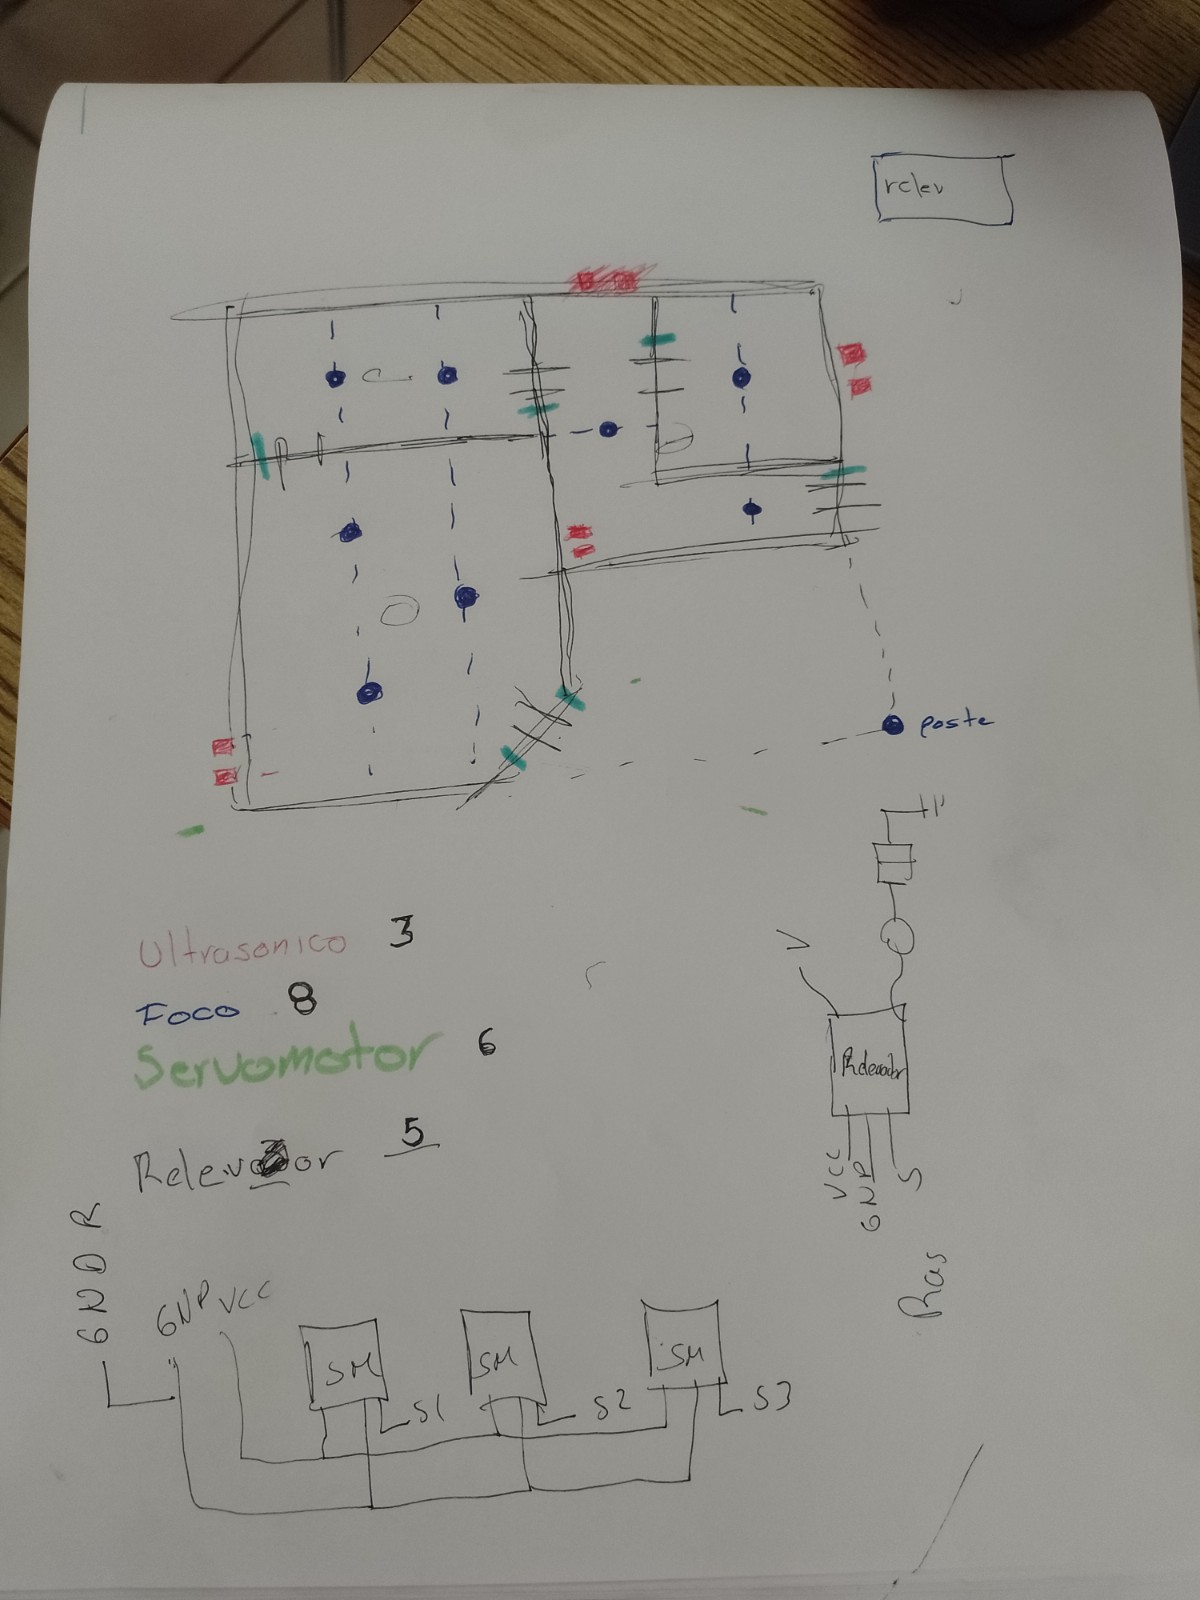 relev
poste
Ultrasonico 3
Foco 8
Servomotor 6
5
V
Relevador
VCC
GND
S
Ras
GND R
GND VCC
SM
SM
SM
S1
S2
S3